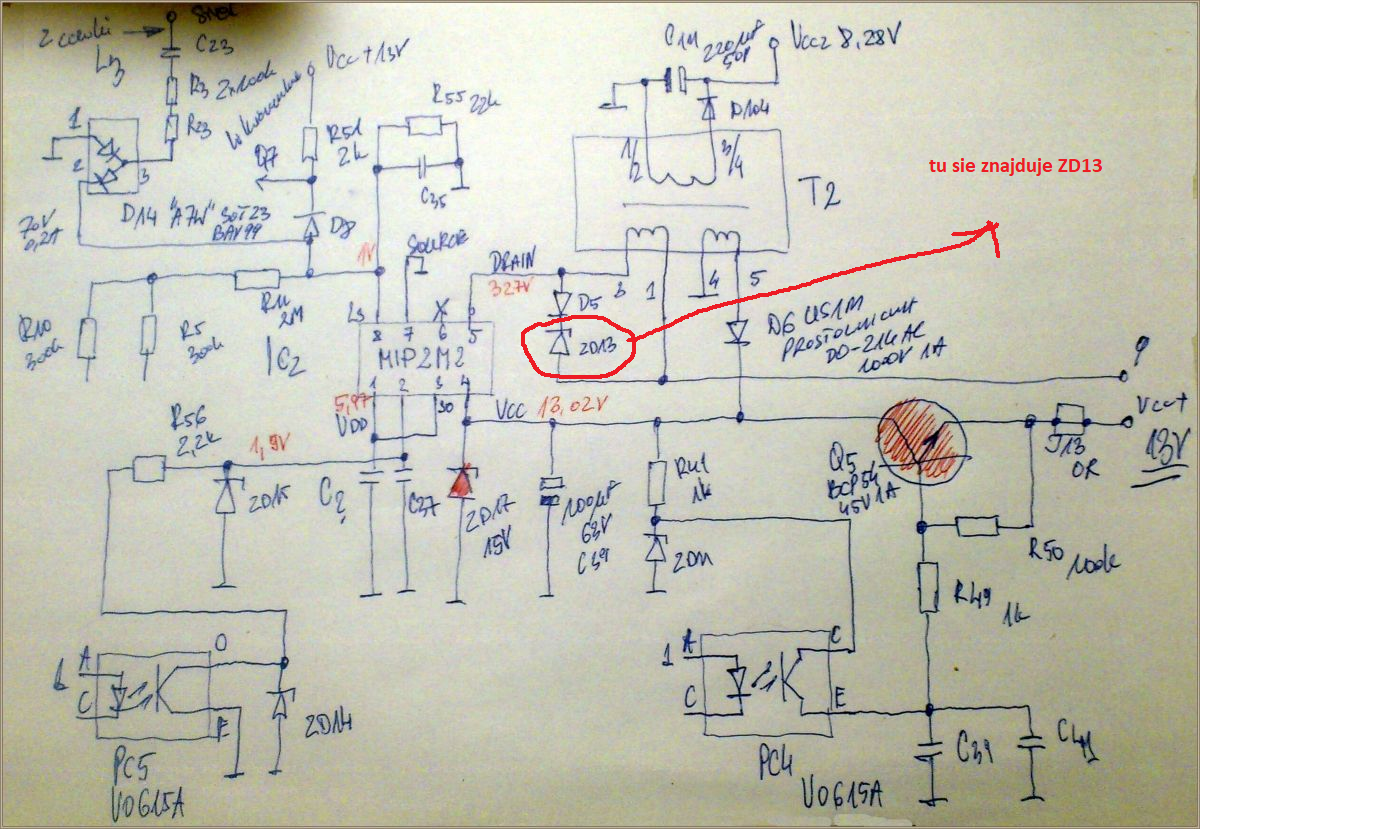 Z cewki
L3
C23
R3 2x100k
R23
Vcc+13V
R51
2k
Q7
R55 22k
C35
C14 220µF
50V
Vccz 8,28V
D104
1/2
3/4
T2
tu sie znajduje ZD13
1
2
3
D14 "A7W" SOT23
BAV99
70V
0,2A
D8
1V
SOURCE
DRAIN
327V
3
1
4
5
D5
ZD13
D6 US1M
PROSTOWNICZA
DO-214AC
1000V 1A
?
R10
300k
R5
300k
R11
2M
IC2
Ls
8
7
X
6
5
MIP2M2
1
2
3
4
5,97
VDD
SO
Vcc 13,02V
R56
2,2k
1,9V
ZD15
C?
C37
ZD17
15V
100µF
63V
C39
R41
1k
ZD11
Q5
BCP54
45V 1A
J13
0R
Vcc+
13V
R50 100k
R49
1k
1
A
C
O
E
ZD14
PC5
VO615A
1
A
C
C
E
PC4
VO615A
C39
C41